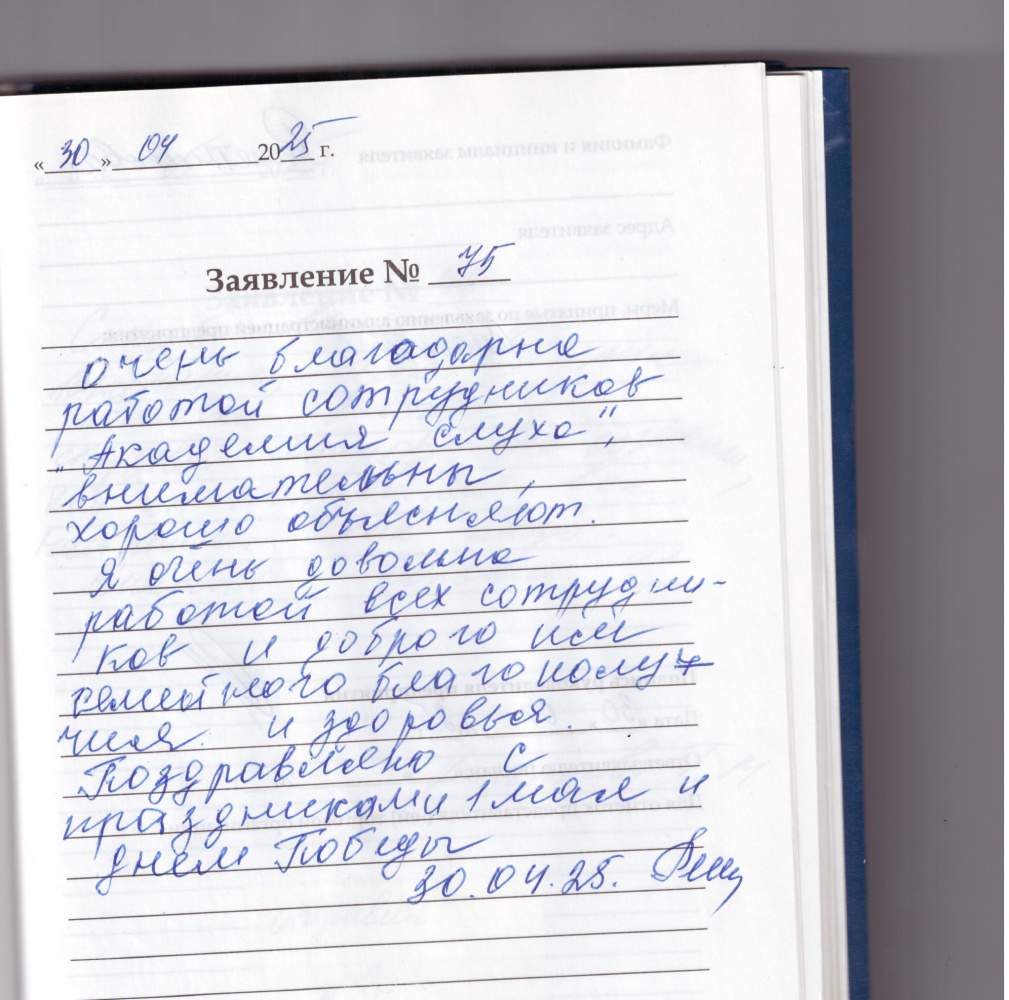 «30» 04 2025 г.
Заявление № 75
очень благадарна
работой сотрудников
"Академия слуха",
внимательны,
хорошо объясняют.
Я очень довольна
работой всех сотрудни-
ков и доброго им
семейного благополуч
чия. и здоровья.
Поздравляю с
праздниками 1 мая и
днем Победы
30.04.25.